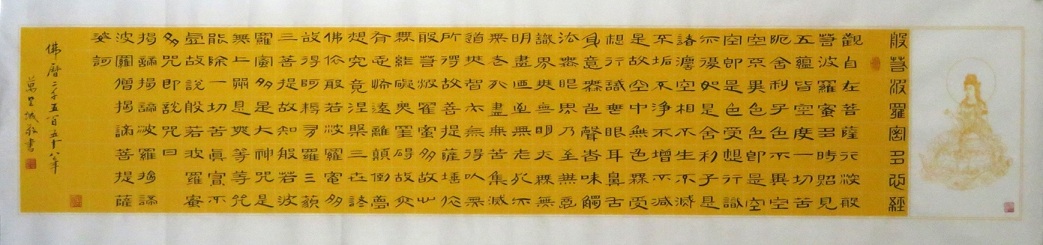 般若波羅密多心經
觀自在菩薩行深般
若波羅蜜多時照見
五蘊皆空度一切苦
厄舍利子色不異空
空不異色色即是空
空即是色受想行識
亦復如是舍利子是
諸法空相不生不滅
不垢不淨不增不減
是故空中無色無受
想行識無眼耳鼻舌
身意無色聲香味觸
法無眼界乃至無意
識界無無明亦無無
明盡乃至無老死亦
無老死盡無苦集滅
道無智亦無得以無
所得故菩提薩埵依
般若波羅蜜多故心
無罣礙無罣礙故無
有恐怖遠離顛倒夢
想究竟涅槃三世諸
佛依般若波羅蜜多
故得阿耨多羅三藐
三菩提故知般若波
羅蜜多是大神咒是
無上咒是無等等咒
能除一切苦真實不
虛故說般若波羅蜜
多咒即說咒曰
揭諦揭諦波羅揭諦
波羅僧揭諦菩提薩
婆訶
佛曆二千五百五十八年
書